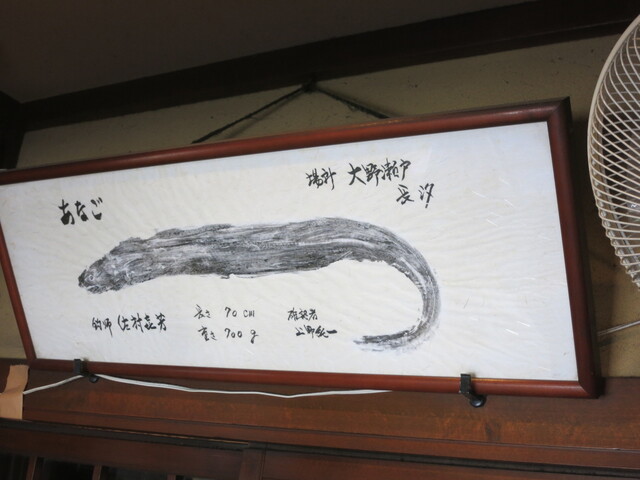 あなご
場所 大野瀬戸
長汐
釣師 住村喜芳
長さ 70cm
重さ 700g
確認者